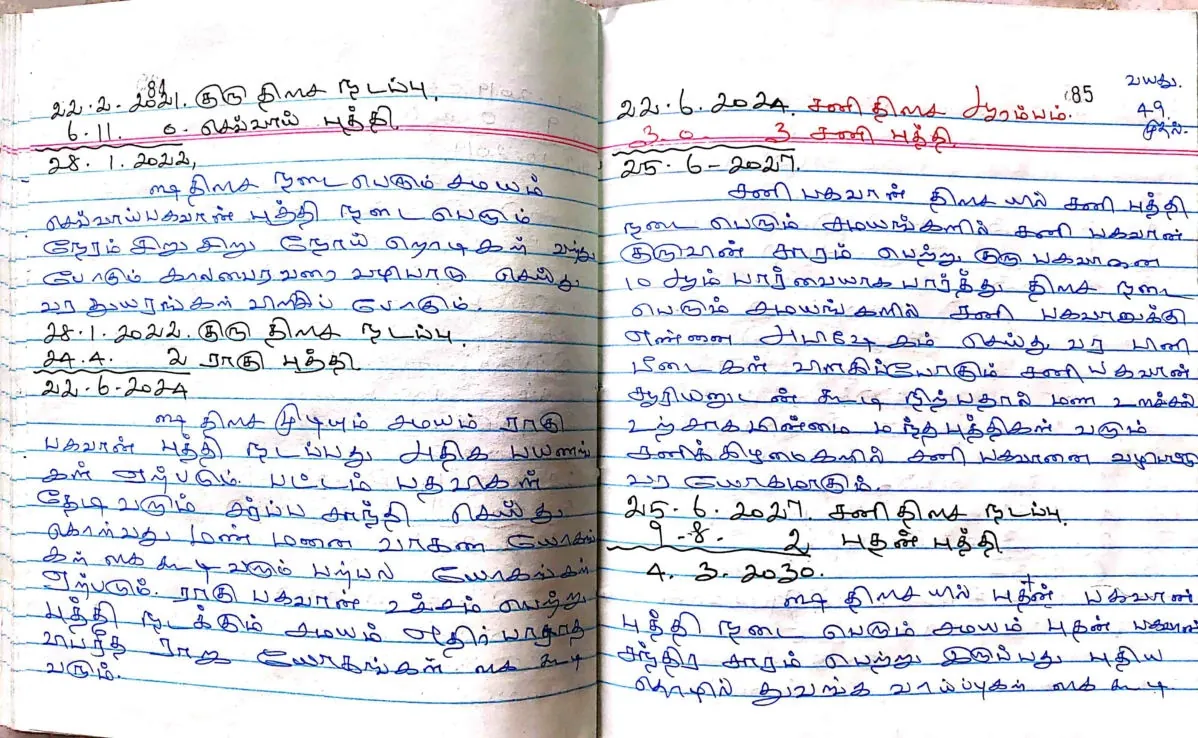 84
22.2.2021. குரு திசை நடப்பு.
6.11. 0. செவ்வாய் புத்தி
28.1.2022,
இத் திசை நடை பெரும் சமயம்
செவ்வாய்பகவான் புத்தி நடை பெரும்
நேரம் சிறு சிறு நோய் நொடிகள் வந்து
போகும் காலபைரவரை வழிபாடு செய்து
வர துயரங்கள் விலகிப் போகும்.
28.1.2022. குரு திசை நடப்பு.
24.4. 2 ராகு புத்தி.
22-6-2024
திசை முடியும் சமயம் ராகு
பகவான் புத்தி நடப்பது அதிக பயணங்
கள் ஏற்படும். பட்டம் பதவிகள்
தேடி வரும் சர்ப்ப சாந்தி செய்து
கொள்வது மண் மனை வாகன யோகங்
கள் கை கூடி வரும் பற்பல யோகங்கள்
ஏற்படும். ராகு பகவான் உச்சம் பெற்று
புத்தி நடக்கும் சமயம் எதிர் பாராத
விபரீத ராஜ யோகங்கள் கை கூடி
வரும்.
85
வயது.
49
முதல்.
22.6.2024. சனி திசை ஆரம்பம்.
3. 0. 3 சனி புத்தி
25.6-2027.
சனி பகவான் திசை யில் சனி புத்தி
நடை பெரும் சமயங்களில் சனி பகவான்
குருவின் சாரம் பெற்று குரு பகவானை
10 ஆம் பார்வையாக பார்த்து திசை நடை
பெரும் சமயங்களில் சனி பகவானுக்கு
எண்ணை அபிஷேகம் செய்து வர பிணி
பீடைகள் விலகிப்போகும் சனி பகவான்
சூரியனுடன் கூடி நிற்பதால் மன உளச்சல்
உற்சாகமின்மை மந்தபுத்திகள் வரும்
சனிக்கிழமைகளில் சனி பகவானை வழிபாடு
வர யோகமாகும்.
25.6.2027. சனி திசை நடப்பு.
9-8. 2 புதன் புத்தி.
4. 3. 2030.
திசை யில் புதன் பகவான்
புத்தி நடை பெரும் சமயம் புதன் பகவான்
சந்திர சாரம் பெற்று இருப்பது புதிய
தொழில் துவங்க வாய்ப்புகள் கை கூடி